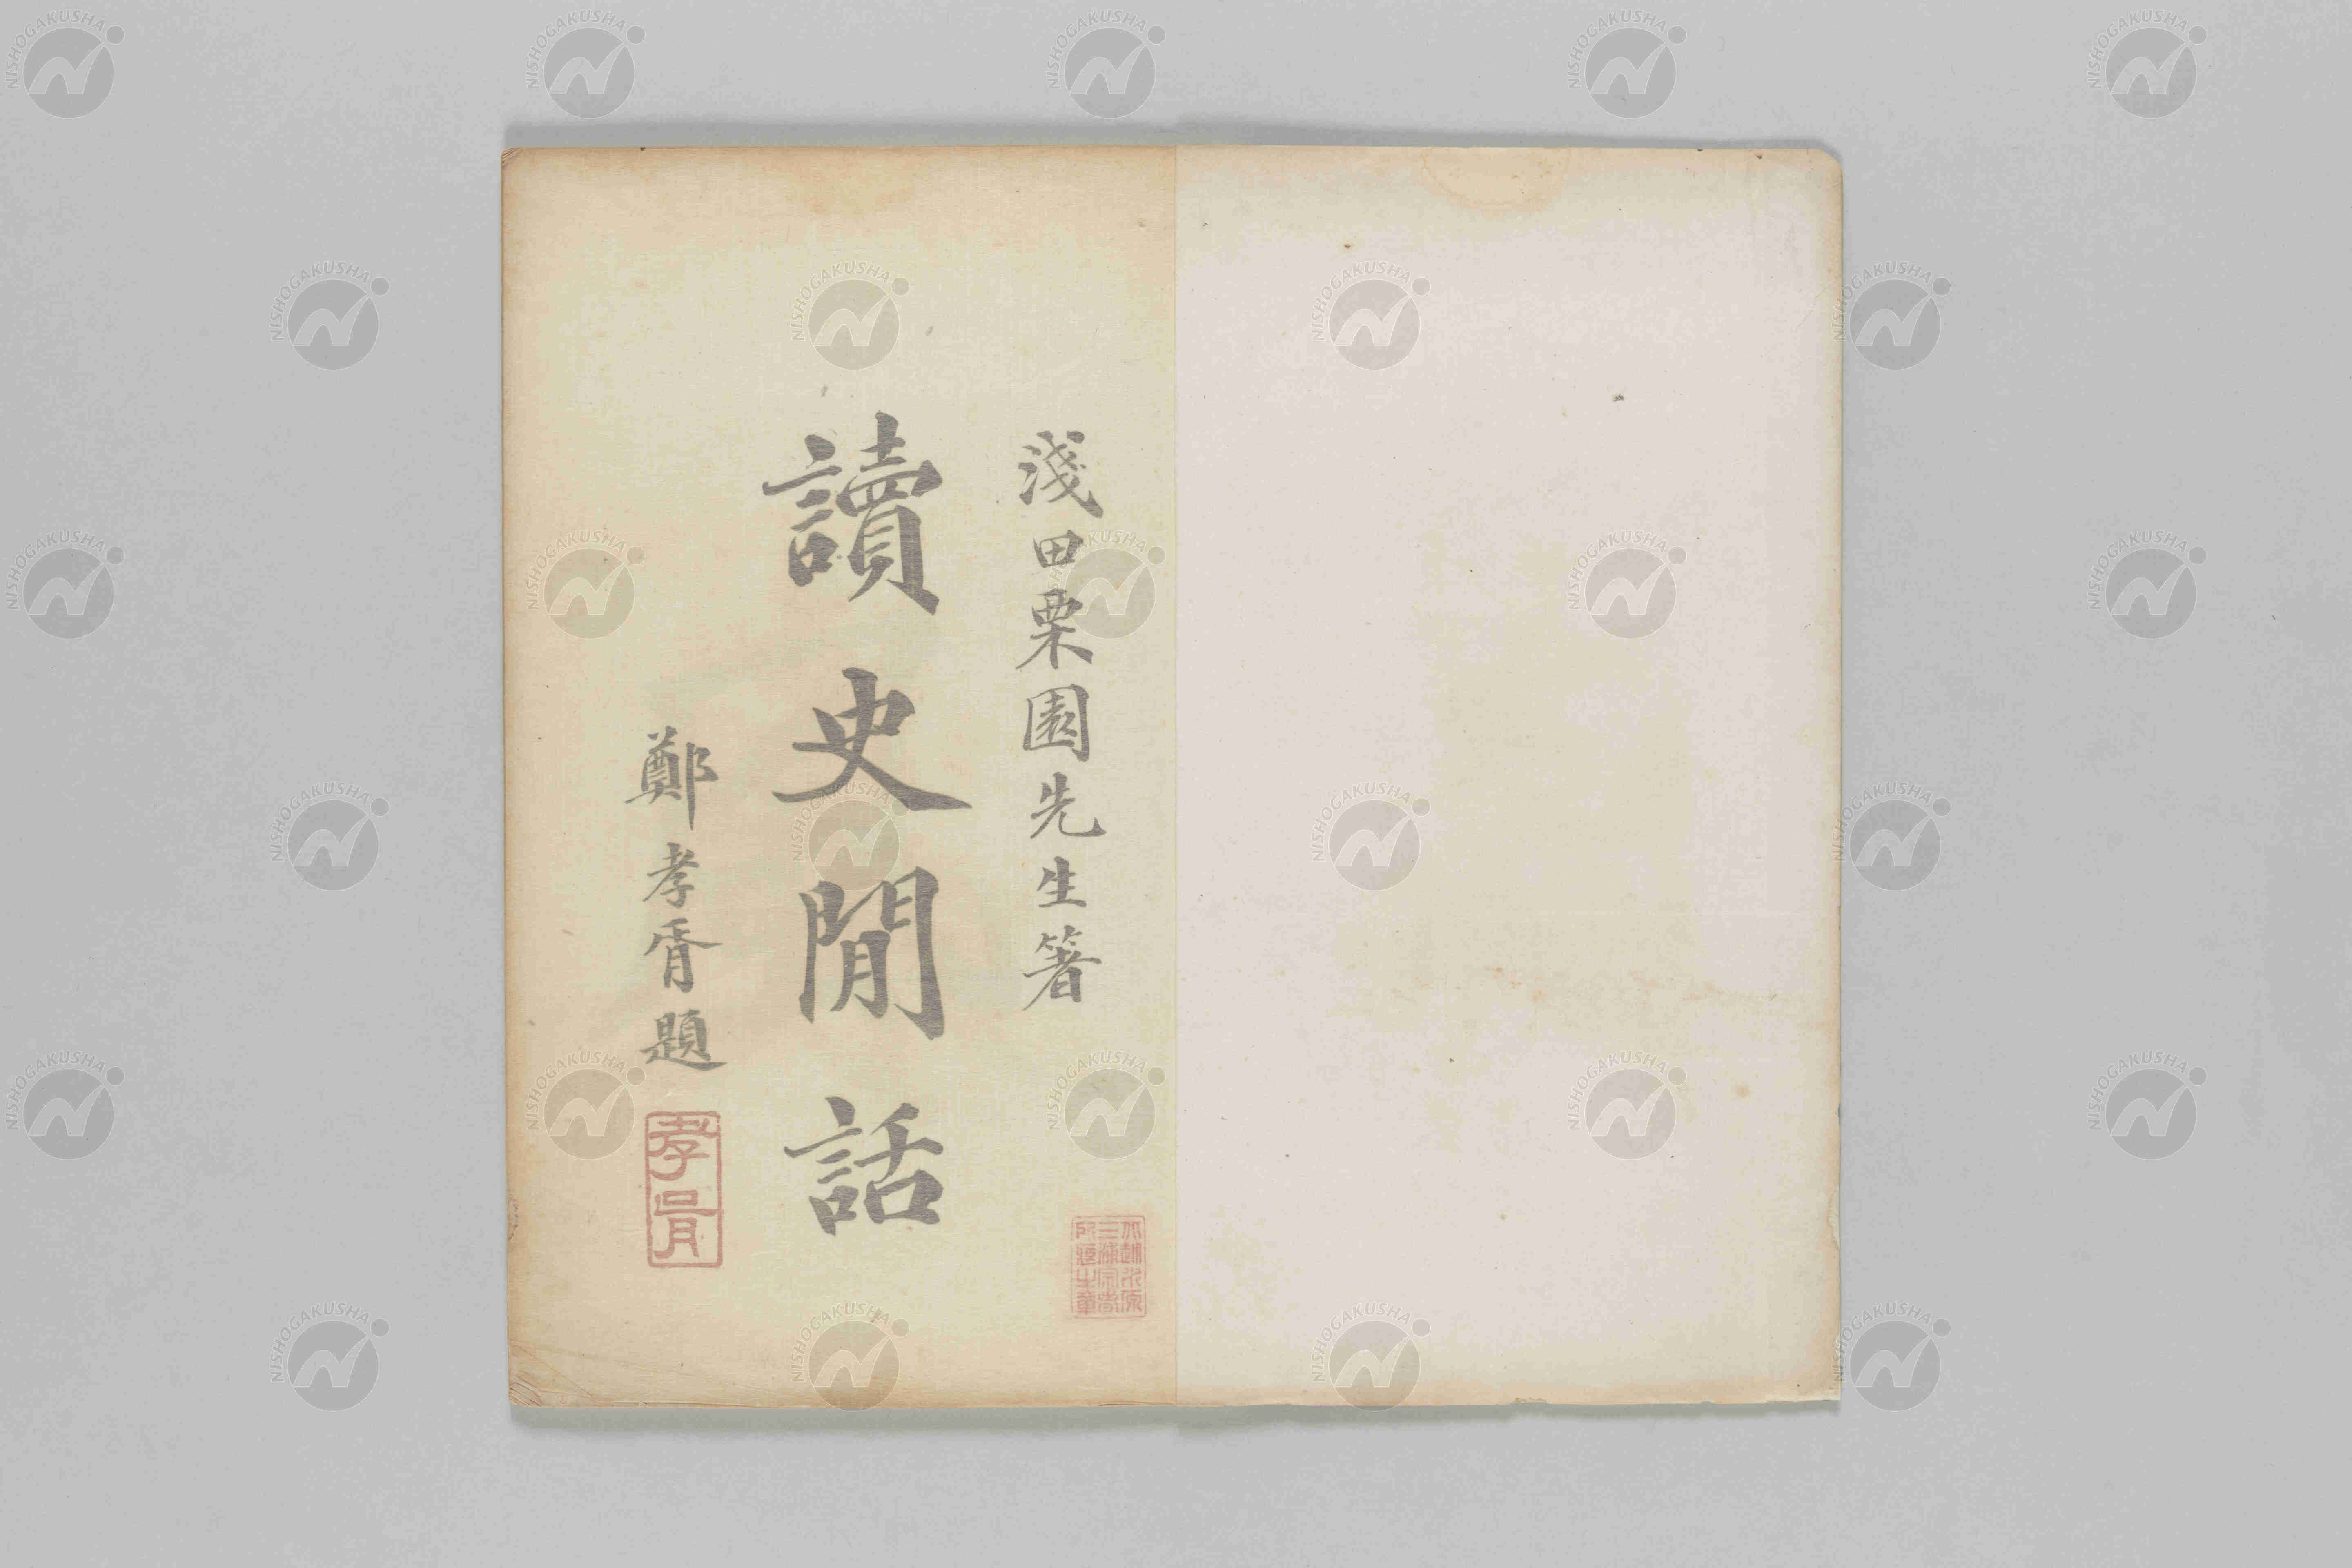 淺田栗園先生箸
讀史閒話
鄭孝胥題
孝胥
NISHOGAKUSHA